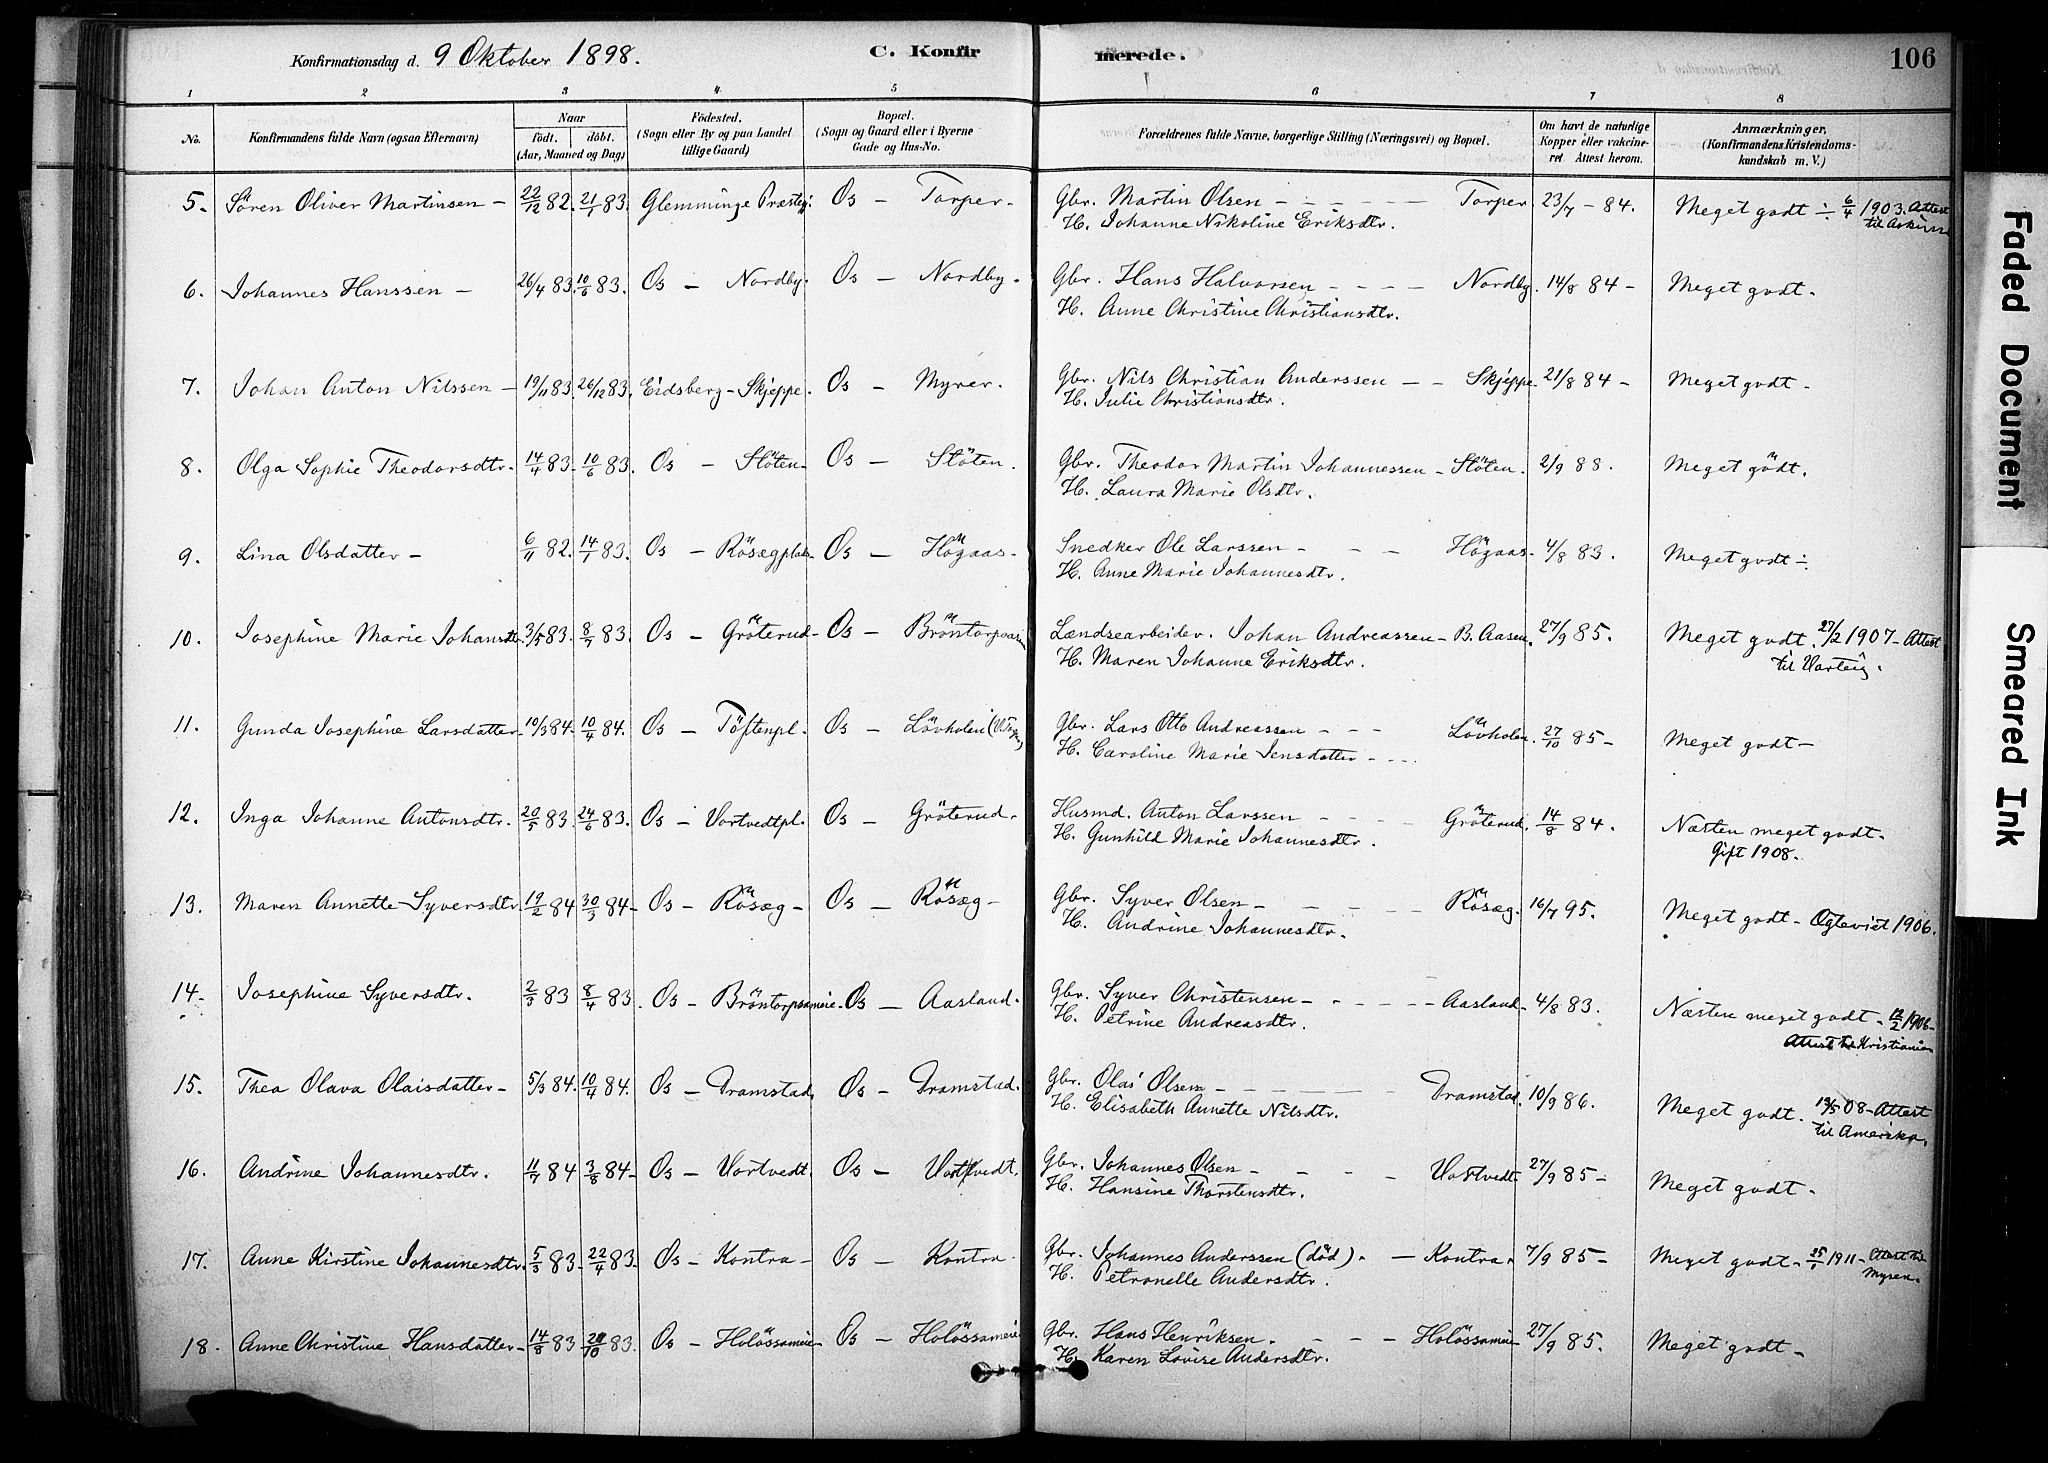 Konfirmationsdag d. 9 Oktober 1898. C. Konfirmerede. 106
1 2 3 4 5 6 7 8
No. Konfirmandens fulde Navn (ogsaa Efternavn) Naar født. døbt. (Aar, Maaned og Dag) Fødested. (Sogn eller By og paa Landet tillige Gaard) Bopæl. (Sogn og Gaard eller i Byerne Gade og Hus-No. Forældrenes fulde Navne, borgerlige Stilling (Næringsvei) og Bopæl. Om havt de naturlige Kopper eller vakcineret Attest herom. Anmærkninger, (Konfirmandens Kristendomskundskab m. V.)
5. Sören Oliver Martinsen - 22/12 82. 21/1 83. Glemminge Præstegj. Os - Torper. Gbr. Martin Olsen - Torper 23/7 - 84. Meget godt ÷ 6/4 1903. Attest
H. Johanne Nikoline Eriksdtr. til Askim
6. Johannes Hanssen - 26/4 83. 10/6 83. Os - Nordby. Os - Nordby. Gbr. Hans Halvorsen - Nordby. 14/8 84 - Meget godt.
H. Anne Christine Christiansdtr.
7. Johan Anton Nilssen - 19/11 83. 26/12 83. Eidsberg - Skjeppe. Os - Myrer. Gbr. Nils Christian Anderssen - Skjeppe. 21/8 84 - Meget godt -
H. Julie Christiansdtr.
8. Olga Sophie Theodorsdtr. 14/4 83. 10/6 83. Os - Slöten. Os - Slöten. Gbr. Theodor Martin Johannessen - Slöten. 2/9 88. Meget godt.
H. Laura Marie Olsdtr.
9. Lina Olsdatter - 6/11 82. 14/1 83. Os - Rösægplads Os - Högaas - Snedker Ole Larssen - Högaas - 4/8 83. Meget godt ÷
H. Anne Marie Johannesdtr.
10. Josephine Marie Johansdtr. 3/5 83. 8/7 83. Os - Gröterud - Os - Bröntorpaasen Lændsearbeider. Johan Andreassen - B. Aasen. 27/9 85. Meget godt. 27/2 1907 - Attest
H. Maren Johanne Eriksdtr. til Varteig.
11. Gunda Josephine Larsdatter 10/3 84. 10/4 84. Os - Töftenpl. Os - Lövholen Gbr. Lars Otto Andreassen - Lövholen. 27/10 85 - Meget godt -
H. Caroline Marie Jensdatter -
12. Inga Johanne Antonsdtr. 20/5 83. 24/6 83. Os - Vortvedtpl. Os - Gröterud. Husmd. Anton Larssen - Gröterud. 14/8 84. Næsten meget godt.
H. Gunhild Marie Johannesdtr. Gift 1908.
13. Maren Annette Syversdtr. 19/2 84 30/3 84 - Os - Rösæg - Os - Rösæg - Gbr. Syver Olsen - Rösæg. 16/7 95. Meget godt - Ogteviet 1906.
H. Andrine Johannesdtr.
14. Josephine Syversdtr. 2/3 83 8/4 83. Os - Bröntorpsameie. Os - Aasland. Gbr. Syver Christensen - Aasland - 4/8 83. Næsten meget godt - 12/2 1906 -
H. Petrine Andreasdtr. Attest til Kristiania
15. Thea Olava Olaisdatter - 5/3 84. 10/4 84. Os - Dramstad. Os - Dramstad. Gbr. Olai Olsen - Dramstad. 10/9 86. Meget godt. 19/5 08 - Attest
H. Elisabeth Annette Nilsdtr. til Amerika.
16. Andrine Johannesdtr. 11/7 84 3/8 84 - Os - Vortvedt. Os - Vortvedt. Gbr. Johannes Olsen - Vortvedt 27/9 85 - Meget godt.
H. Hansine Thorstensdtr.
17. Anne Kirstine Johannesdtr. 5/3 83 - 22/4 83 - Os - Kontra - Os - Kontra. Gbr. Johannes Anderssen (død). - Kontra. 7/9 85 - Meget godt - 25/1 1911 - Attest til
H. Petronelle Andersdtr. Mysen.
18. Anne Christine Hansdatter - 14/8 83 /10 83. Os - Holössameie - Os - Holössameie Gbr. Hans Henriksen. - Holössameie 27/9 85. Meget godt -
H. Karen Lovise Andersdtr.
Faded Document
Smeared Ink